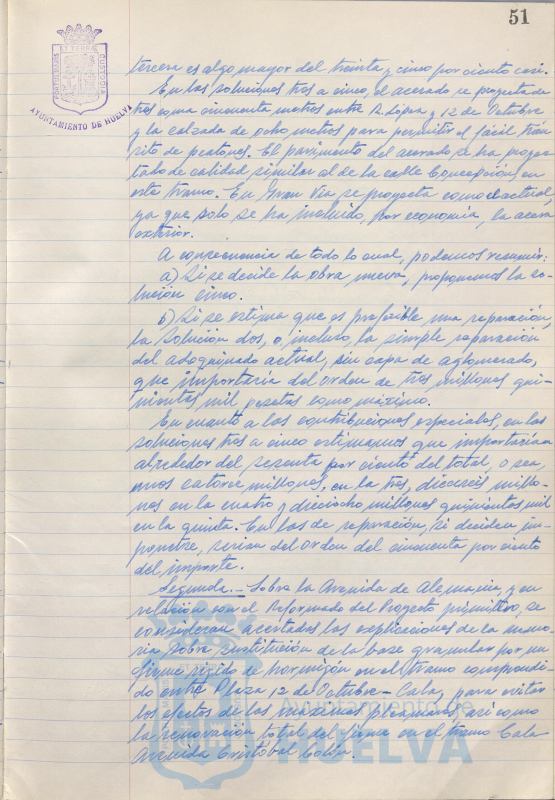 51
PORTUS MARIS ET TERRAE CUSTODIA
AYUNTAMIENTO DE HUELVA
tercera es algo mayor del treinta y cinco por ciento casi.
En las soluciones tres a cinco, el acerado se proyecta de
tres coma cincuenta metros entre R. López y 12 de Octubre
y la calzada de ocho metros para permitir el fácil trán-
sito de peatones. El pavimento del acerado se ha proyec-
tado de calidad similar al de la calle Concepción, en
este tramo. En Gran Via se proyecta como el actual,
ya que solo se ha incluido, por economía, la acera
exterior.
A consecuencia de todo lo cual, podemos resumir:
a) Si se decide la obra nueva, proponemos la so-
lución cinco.
b) Si se estima que es preferible una reparación,
la Solución dos, o, incluso, la simple reparación
del adoquinado actual, sin capa de aglomerado,
que importaría del orden de tres millones qui-
nientas mil pesetas como máximo.
En cuanto a las contribuciones especiales, en las
soluciones tres a cinco estimamos que importarían
alrededor del sesenta por ciento del total, o sea,
unos catorce millones, en la tres, dieciseis millo-
nes en la cuatro y dieciocho millones quinientos mil
en la quinta. En las de reparación, si deciden im-
ponerse, serían del orden del cincuenta por ciento
del importe.
Segunda.- Sobre la Avenida de Alemania, y en
relación con el Reformado del Proyecto primitivo, se
consideran acertadas las explicaciones de la memo-
ria sobre sustitución de la base granular por un
firme rígido de hormigón en el tramo comprendi-
do entre Plaza 12 de Octubre - Cala, para evitar
los efectos de las máximas pleamares, así como
la renovación total del firme en el tramo Cala-
Avenida Cristóbal Colón.
Ayuntamiento de
HUELVA